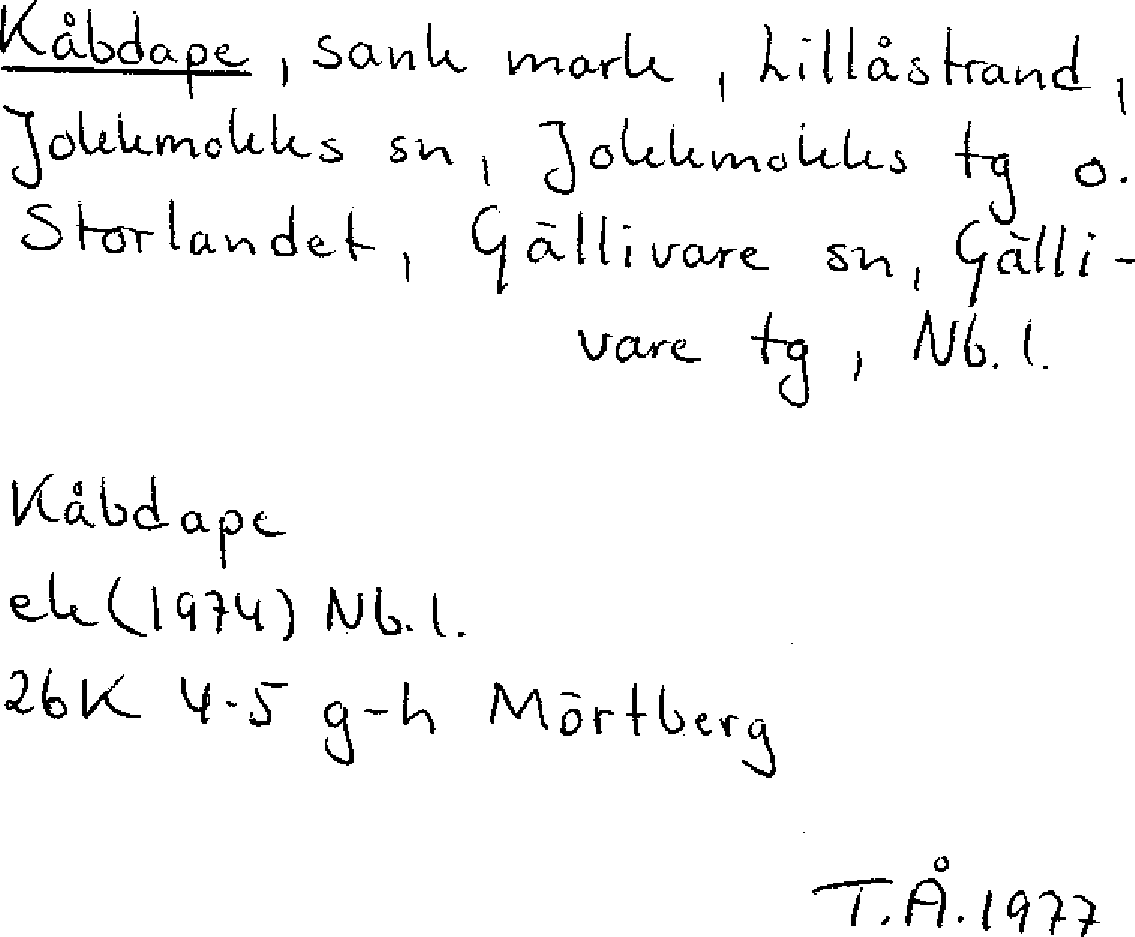 Kåbdape, sank mark, Lillåstrand,
Jokkmokks sn, Jokkmokks tg o.
Storlandet, Gällivare sn, Gälli-
vare tg, Nb. l.
Kåbdape
ek (1974) Nb. l.
26K 4-5 g-h Mörtberg
T.Å. 1977